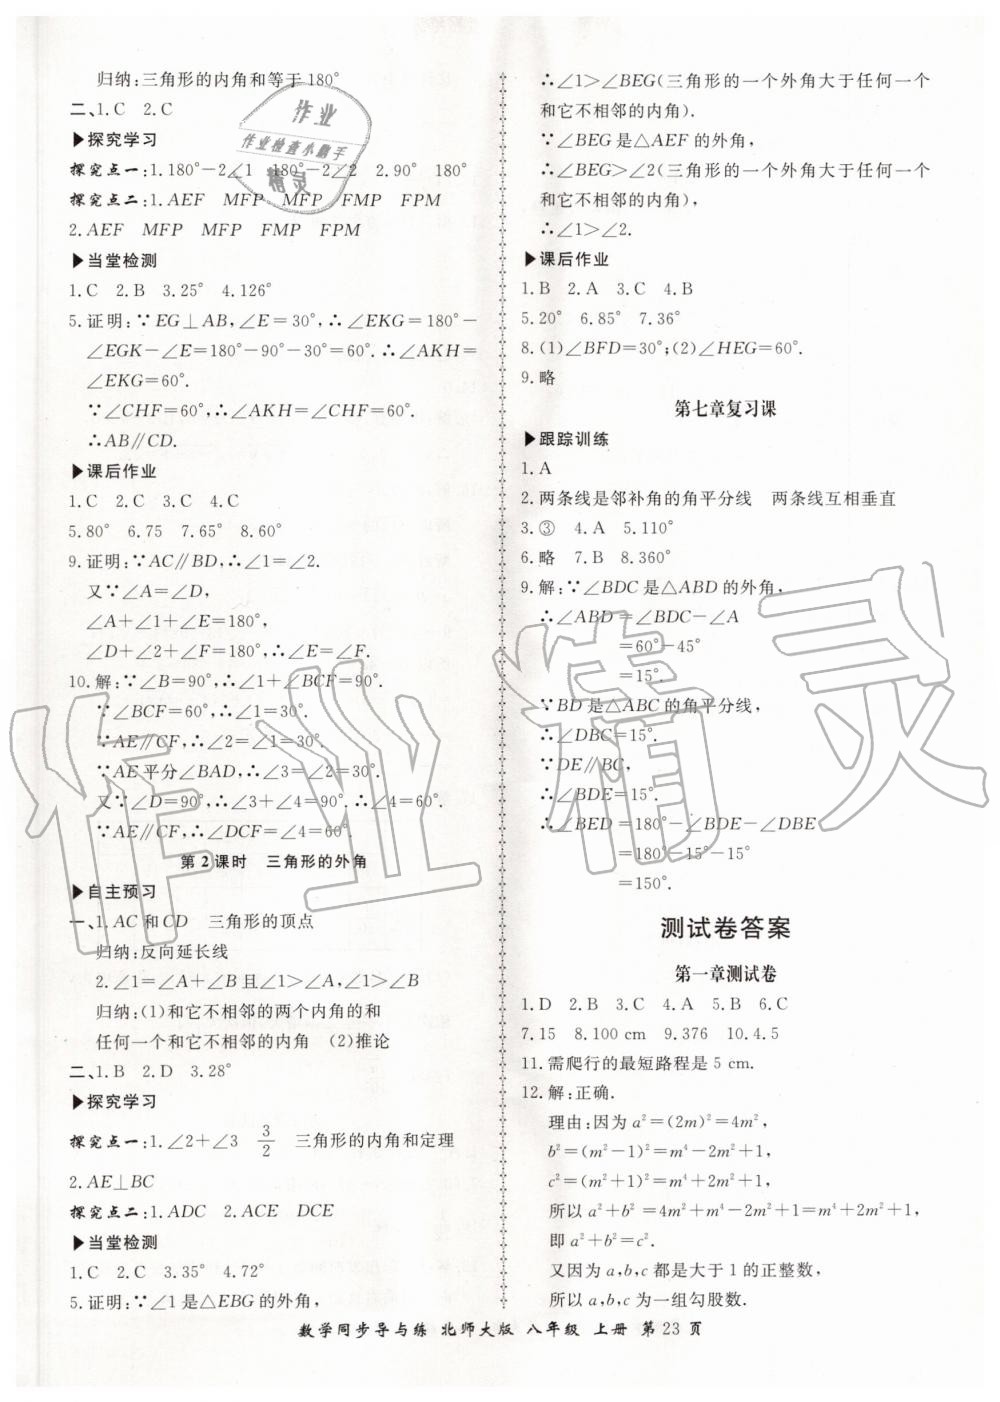 归纳:三角形的内角和等于180°
二、1.C 2.C
▶探究学习
探究点一:1.180°-2∠1 180°-2∠2 2.90° 180°
探究点二:1.AEF MFP MFP FMP FPM
2.AEF MFP MFP FMP FPM
▶当堂检测
1.C 2.B 3.25° 4.126°
5.证明:∵EG⊥AB,∠E=30°,∴∠EKG=180°-
∠EGK-∠E=180°-90°-30°=60°.∴∠AKH=
∠EKG=60°.
∵∠CHF=60°,∴∠AKH=∠CHF=60°.
∴AB∥CD.
▶课后作业
1.C 2.C 3.C 4.C
5.80° 6.75 7.65° 8.60°
9.证明:∵AC∥BD,∴∠1=∠2.
又∵∠A=∠D,
∠A+∠1+∠E=180°,
∠D+∠2+∠F=180°,∴∠E=∠F.
10.解:∵∠B=90°,∴∠1+∠BCF=90°.
∵∠BCF=60°,∴∠1=30°.
∵AE∥CF,∴∠2=∠1=30°.
∵AE平分∠BAD,∴∠3=∠2=30°.
又∵∠D=90°,∴∠3+∠4=90°.∴∠4=60°.
∵AE∥CF,∴∠DCF=∠4=60°.
第2课时 三角形的外角
▶自主预习
一、1.AC和CD 三角形的顶点
归纳:反向延长线
2.∠1=∠A+∠B且∠1>∠A,∠1>∠B
归纳:(1)和它不相邻的两个内角的和
任何一个和它不相邻的内角 (2)推论
二、1.B 2.D 3.28°
▶探究学习
探究点一:1.∠2+∠3 3/2 三角形的内角和定理
2.AE⊥BC
探究点二:1.ADC 2.ACE DCE
▶当堂检测
1.C 2.C 3.35° 4.72°
5.证明:∵∠1是△EBG的外角,
∴∠1>∠BEG(三角形的一个外角大于任何一个
和它不相邻的内角).
∵∠BEG是△AEF的外角,
∴∠BEG>∠2(三角形的一个外角大于任何一个
和它不相邻的内角),
∴∠1>∠2.
▶课后作业
1.B 2.A 3.C 4.B
5.20° 6.85° 7.36°
8.(1)∠BFD=30°;(2)∠HEG=60°.
9.略
第七章复习课
▶跟踪训练
1.A
2.两条线是邻补角的角平分线 两条线互相垂直
3.③ 4.A 5.110°
6.略 7.B 8.360°
9.解:∵∠BDC是△ABD的外角,
∴∠ABD=∠BDC-∠A
=60°-45°
=15°.
∵BD是△ABC的角平分线,
∴∠DBC=15°.
∵DE∥BC,
∴∠BDE=15°.
∴∠BED=180°-∠BDE-∠DBE
=180°-15°-15°
=150°.
测试卷答案
第一章测试卷
1.D 2.B 3.C 4.A 5.B 6.C
7.15 8.100 cm 9.376 10.4.5
11.需爬行的最短路程是5 cm.
12.解:正确.
理由:因为a²=(2m)²=4m²,
b²=(m²-1)²=m⁴-2m²+1,
c²=(m²+1)²=m⁴+2m²+1,
所以a²+b²=4m²+m⁴-2m²+1=m⁴+2m²+1,
即a²+b²=c².
又因为a,b,c都是大于1的正整数,
所以a,b,c为一组勾股数.
数学同步导与练 北师大版 八年级 上册 第23页
作业
作业检查小帮手
精灵
作业精灵